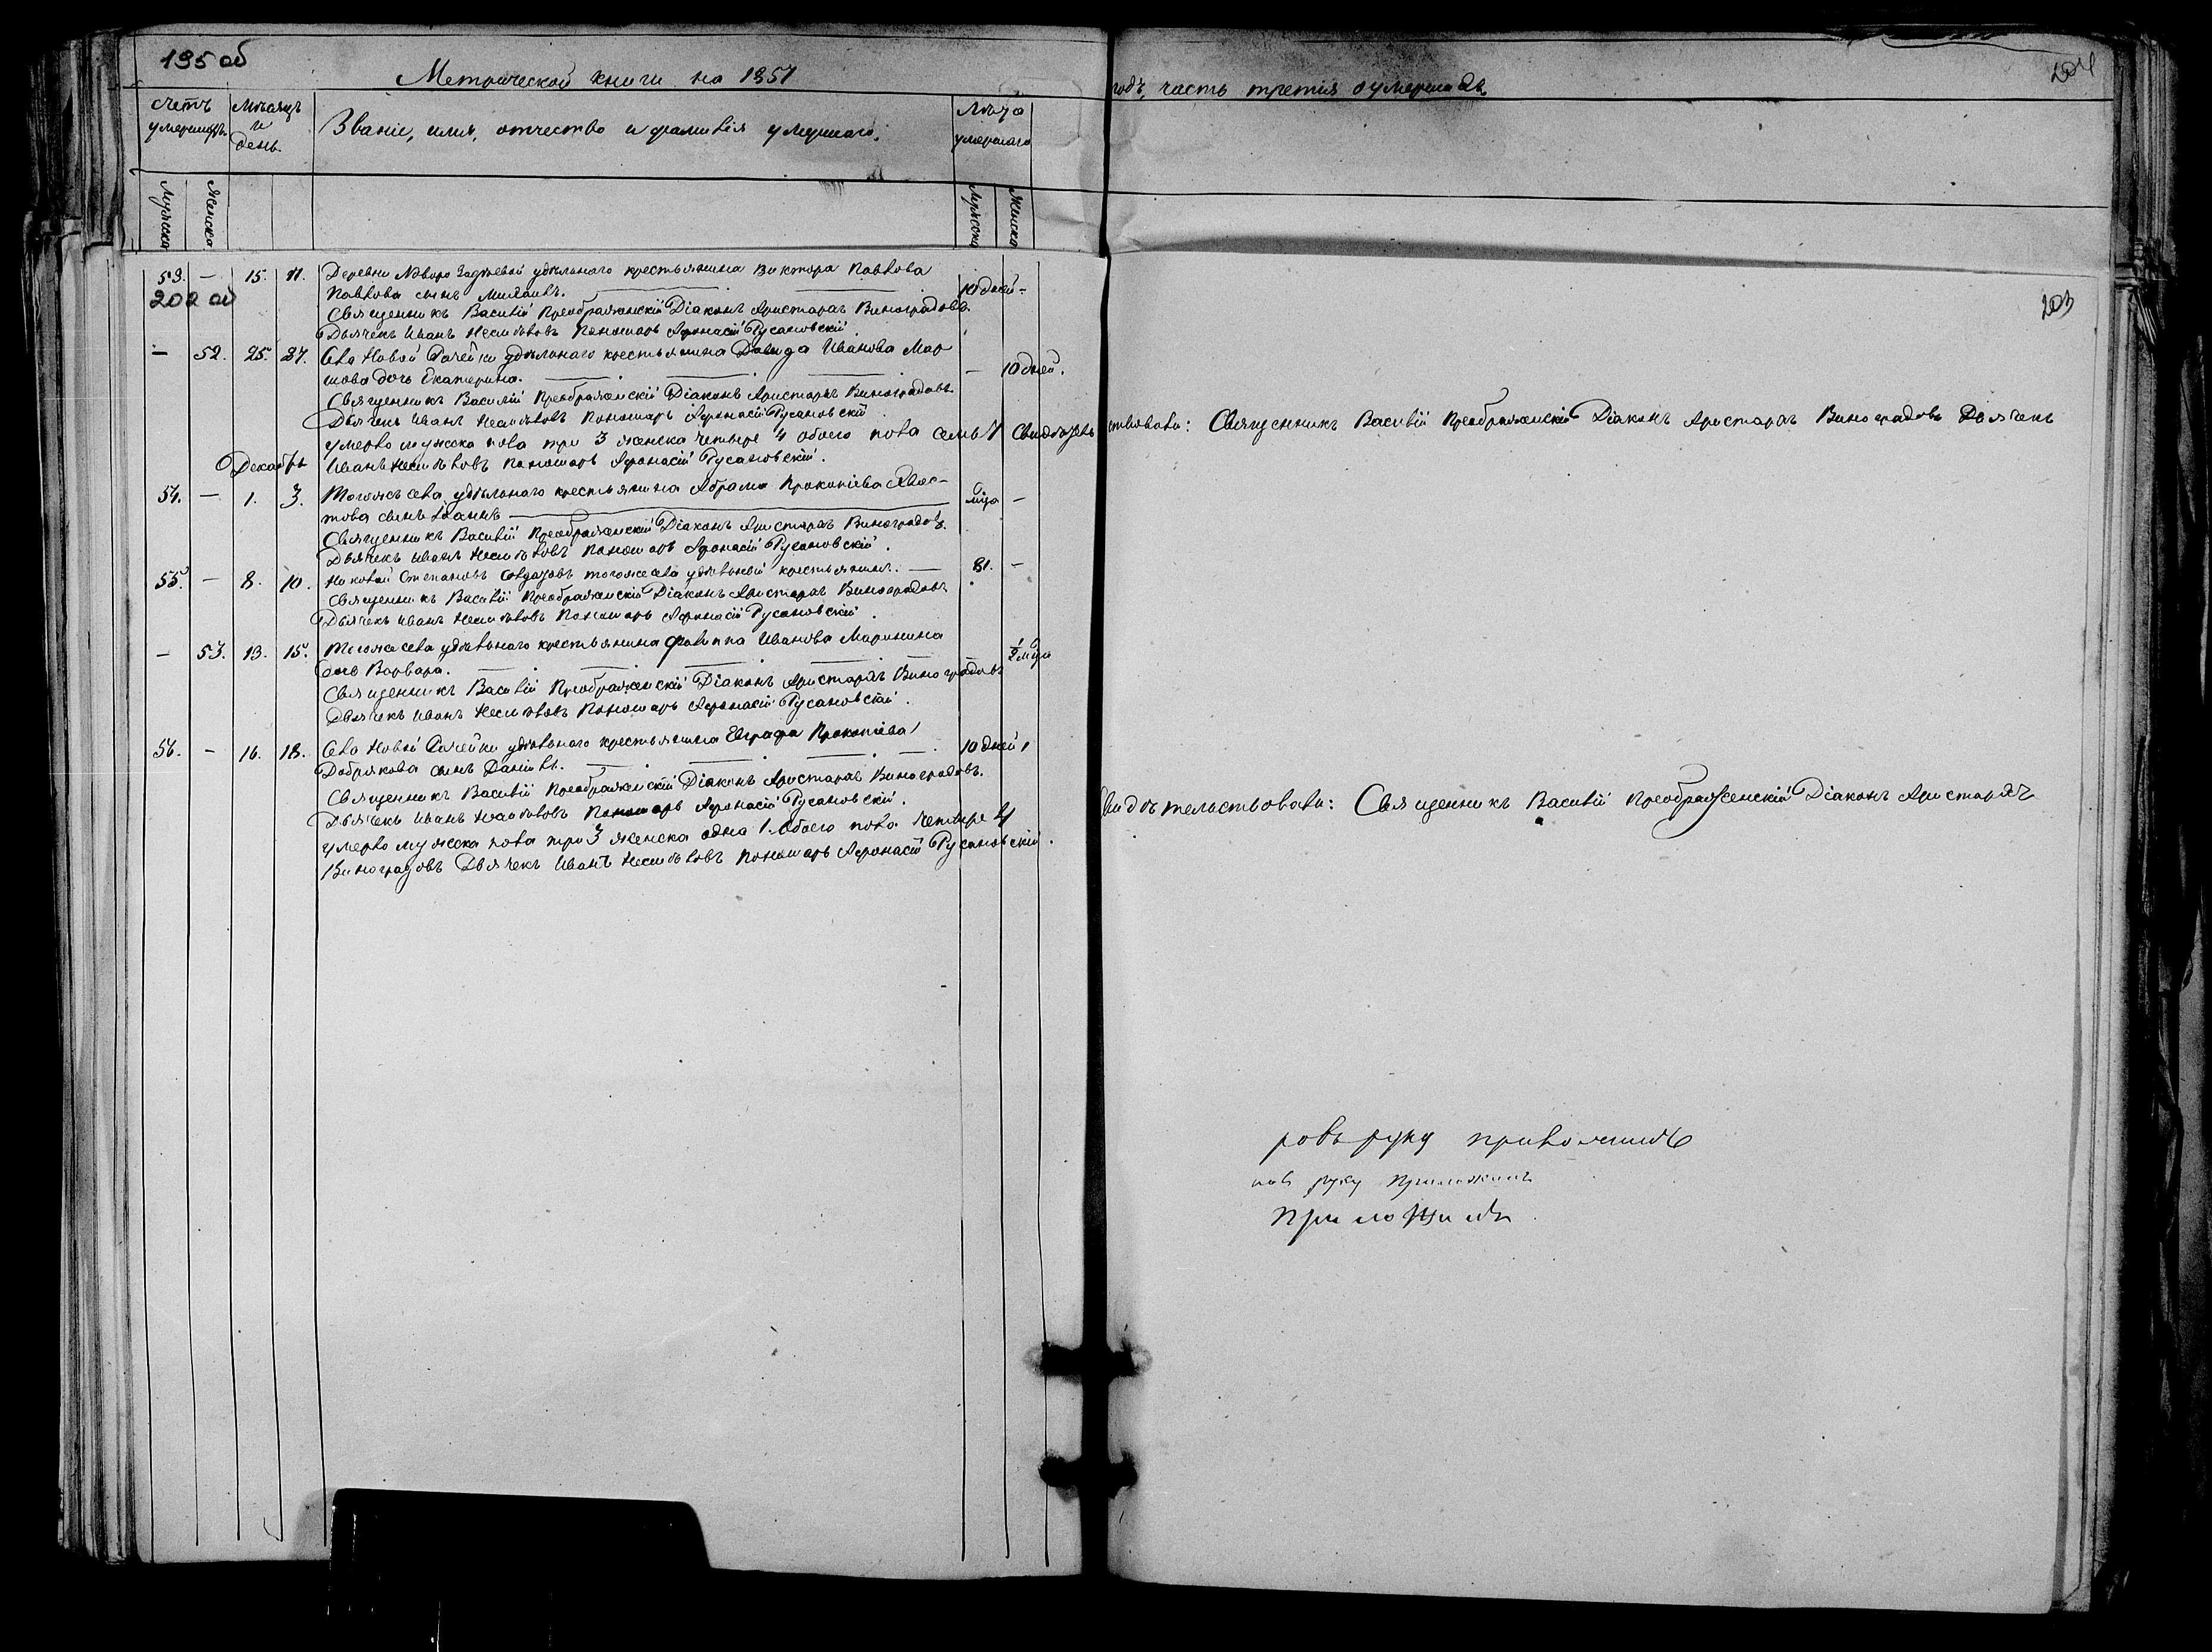 195 об
204
Метрической книги на 1851
годъ, часть третия о умершихъ.
счетъ умершихъ.
Мѣсяцъ и день.
Званіе, имя, отчество и фамилія умершаго.
Лѣта умершаго
Мужеска
Женска
Мужска
Женска
53. — 15. 17. Деревни удѣльнаго крестьянина Виктора Павлова
202 об
203
Павлова сынъ Михаилъ. 10 дней —
Священникъ Василій Преображенскій Діаконъ Аристархъ Виноградовъ.
Дьячекъ Иванъ Несмѣловъ Пономарь Афонасій Русановскій.
— 52. 25. 27. Села Новой Рачейки удѣльнаго крестьянина Давида Иванова Мар
шова дочь Екатерина. — 10 дней.
Священникъ Василій Преображенскій Діаконъ Аристархъ Виноградовъ.
Дьячекъ Иванъ Несмѣловъ Пономарь Афонасій Русановскій.
умерло мужеска пола три 3 женска четыре 4 обоего пола семь 7 Свидѣтельствовали: Священникъ Василій Преображенскій Діаконъ Аристархъ Виноградовъ Дьячекъ
Иванъ Несмѣловъ Пономарь Афонасій Русановскій.
Декабрь
54. — 1. 3. Тогожъ села удѣльнаго крестьянина Абрама Прокопіева Хвос-
това сынъ Іоаннъ — міца —
Священникъ Василій Преображенскій Діаконъ Аристархъ Виноградовъ.
Дьячекъ Иванъ Несмѣловъ Пономарь Афонасій Русановскій.
55. — 8. 10. Николай Степановъ тогоже села удѣльный крестьянинъ. — 81. —
Священникъ Василій Преображенскій Діаконъ Аристархъ Виноградовъ
Дьячекъ Иванъ Несмѣловъ Пономарь Афонасій Русановскій.
— 53. 13. 15. Тогоже села удѣльнаго крестьянина Филиппа Иванова Маринина
дочь Варвара. — ½ міца
Священникъ Василій Преображенскій Діаконъ Аристархъ Виноградовъ
Дьячекъ Иванъ Несмѣловъ Пономарь Афонасій Русановскій.
56. — 16. 18. Села Новой Рачейки удѣльнаго крестьянина Евграфа Прокопіева
Добрякова сынъ Даніилъ. 10 дней
Священникъ Василій Преображенскій Діаконъ Аристархъ Виноградовъ.
Дьячекъ Иванъ Несмѣловъ Пономарь Афонасій Русановскій.
умерло мужеска пола три 3 женска одна 1. Обоего пола четыре 4 Свидѣтельствовали: Священникъ Василій Преображенскій Діаконъ Аристархъ
Виноградовъ Дьячекъ Иванъ Несмѣловъ Пономарь Афонасій Русановскій.
ровъ руку приложилъ
руку приложилъ
приложилъ